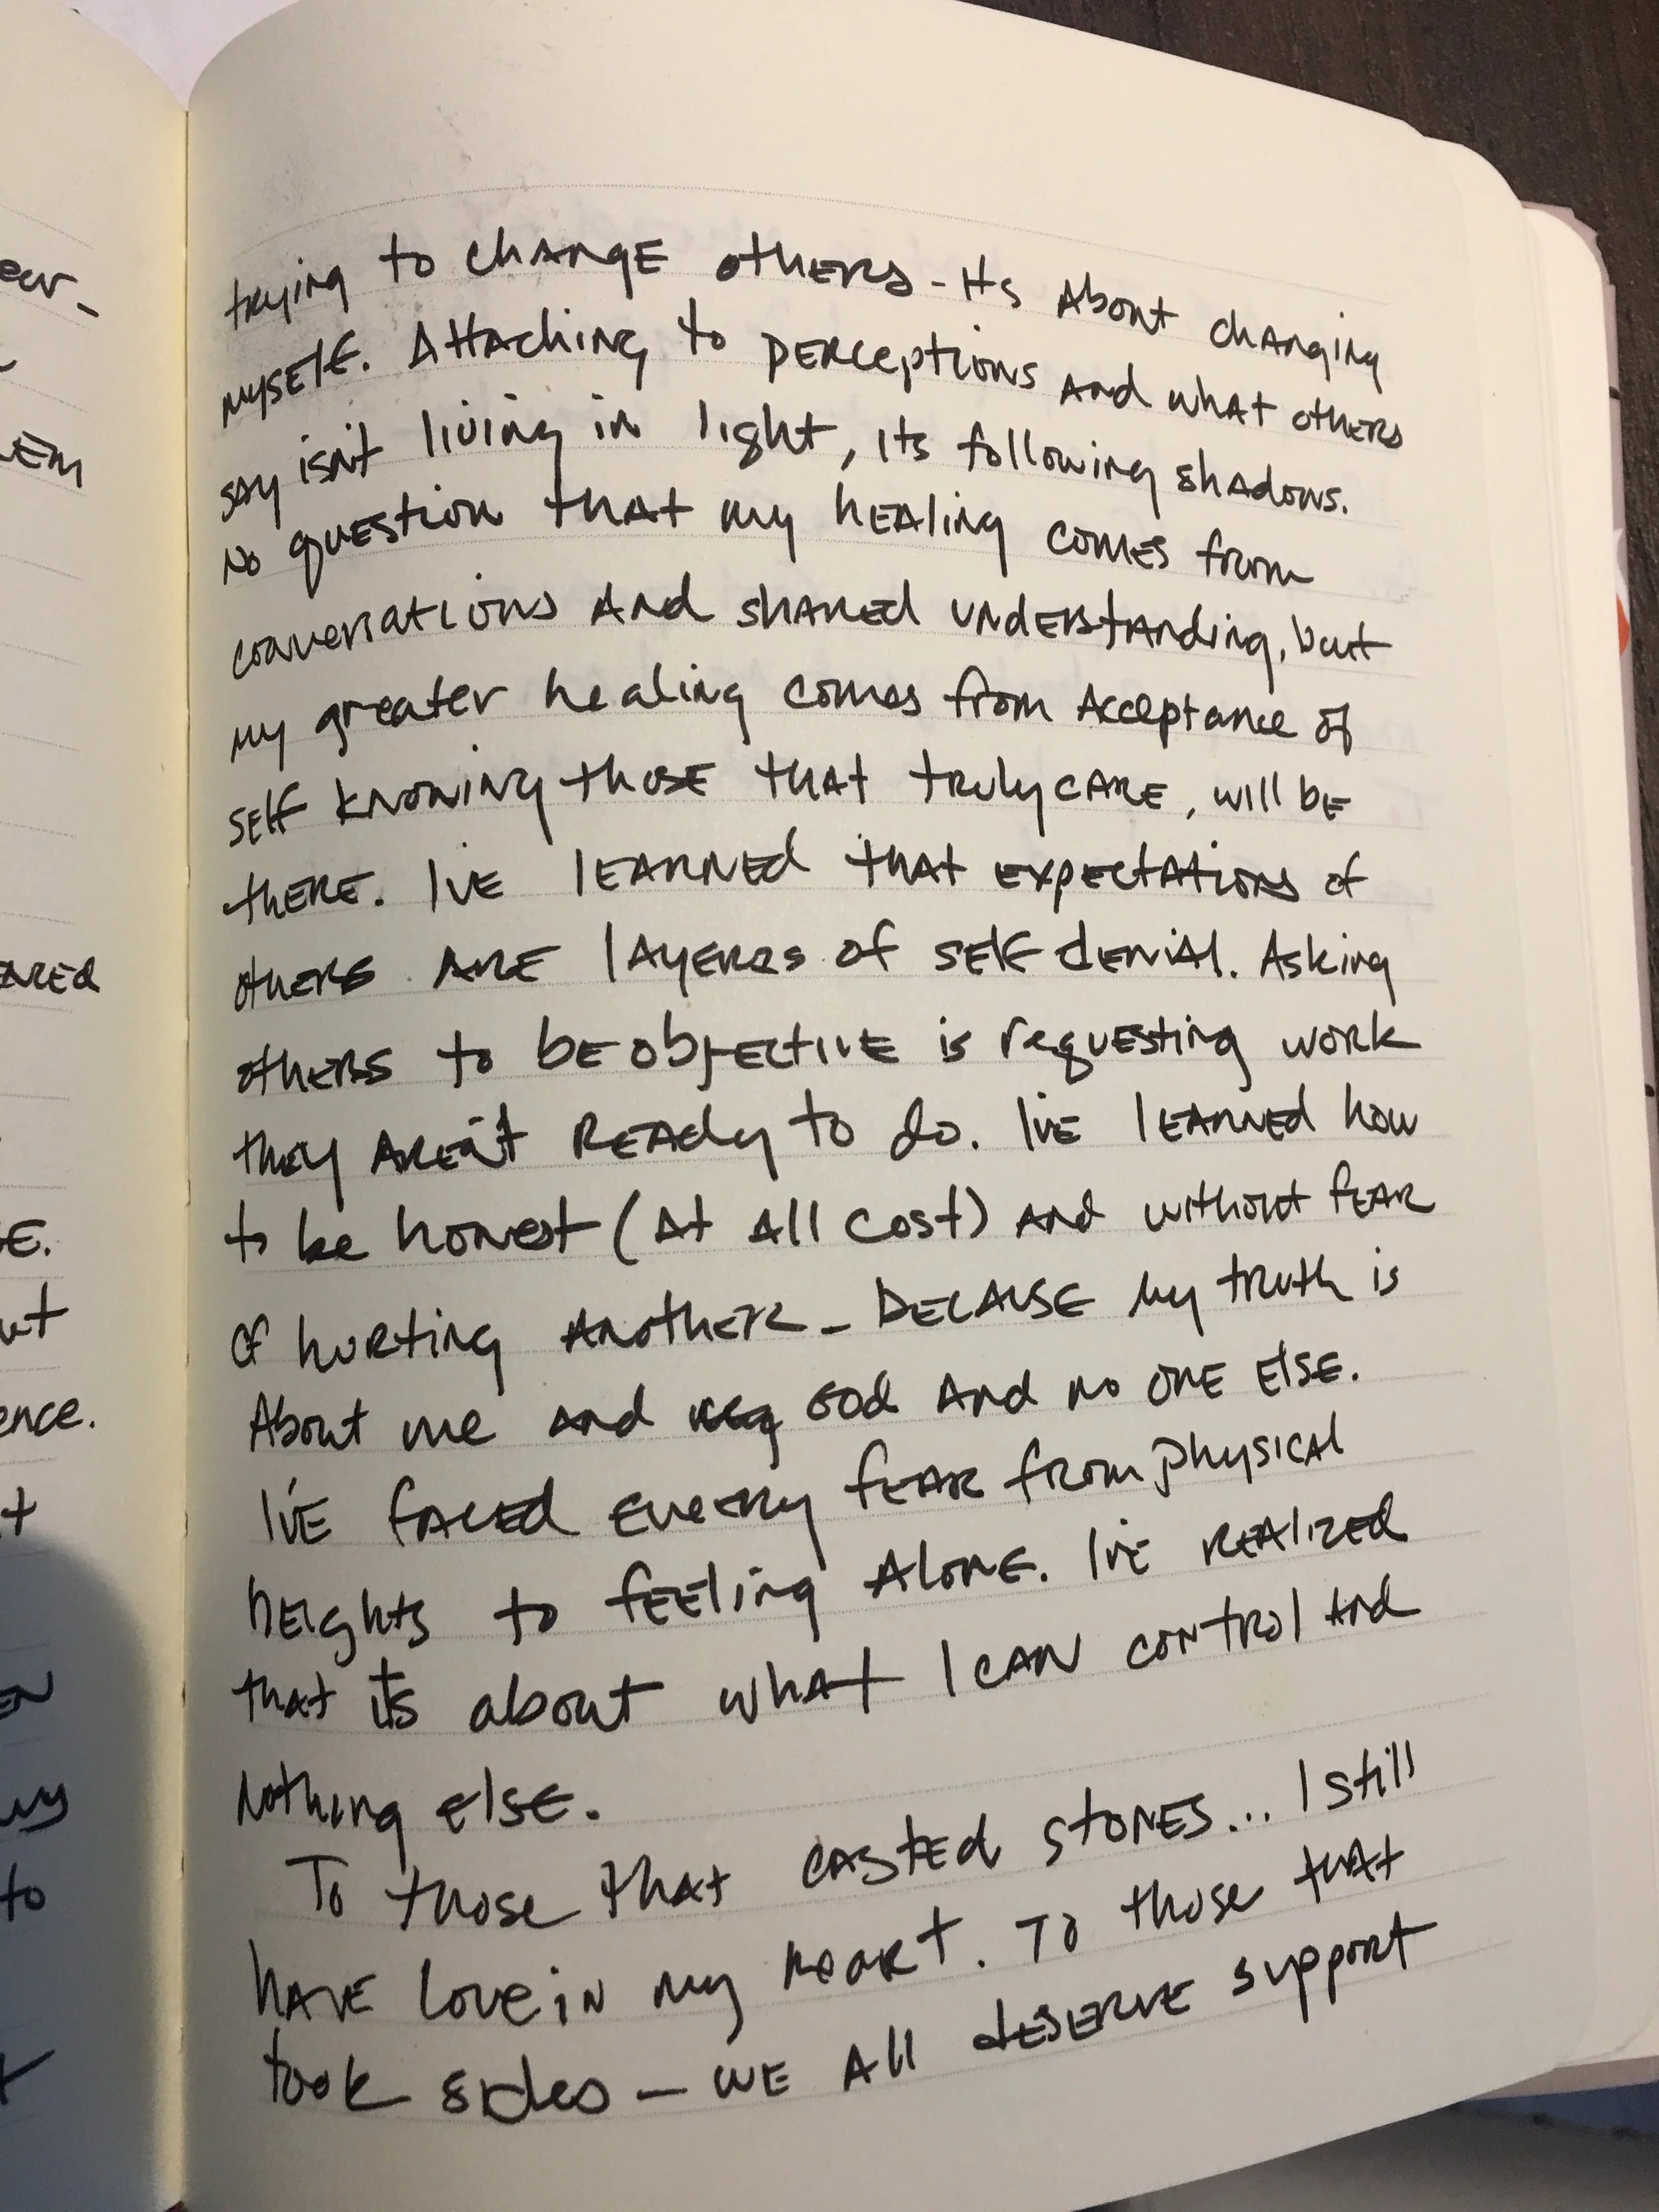 trying to change others - its about changing
myself. Attaching to perceptions and what others
say isn't living in light, its following shadows.
No question that my healing comes from
conversations and shared understanding, but
my greater healing comes from Acceptance of
self knowing those that truly care, will be
there. I've learned that expectations of
others are layers of self denial. Asking
others to be objective is requesting work
they aren't ready to do. I've learned how
to be honest (at all cost) and without fear
of hurting another - because my truth is
About me and God and no one else.
I've faced every fear from physical
heights to feeling alone. I've realized
that its about what I can control and
nothing else.
To those that casted stones... I still
have love in my heart. To those that
took sides - we all deserve support
ence.
to